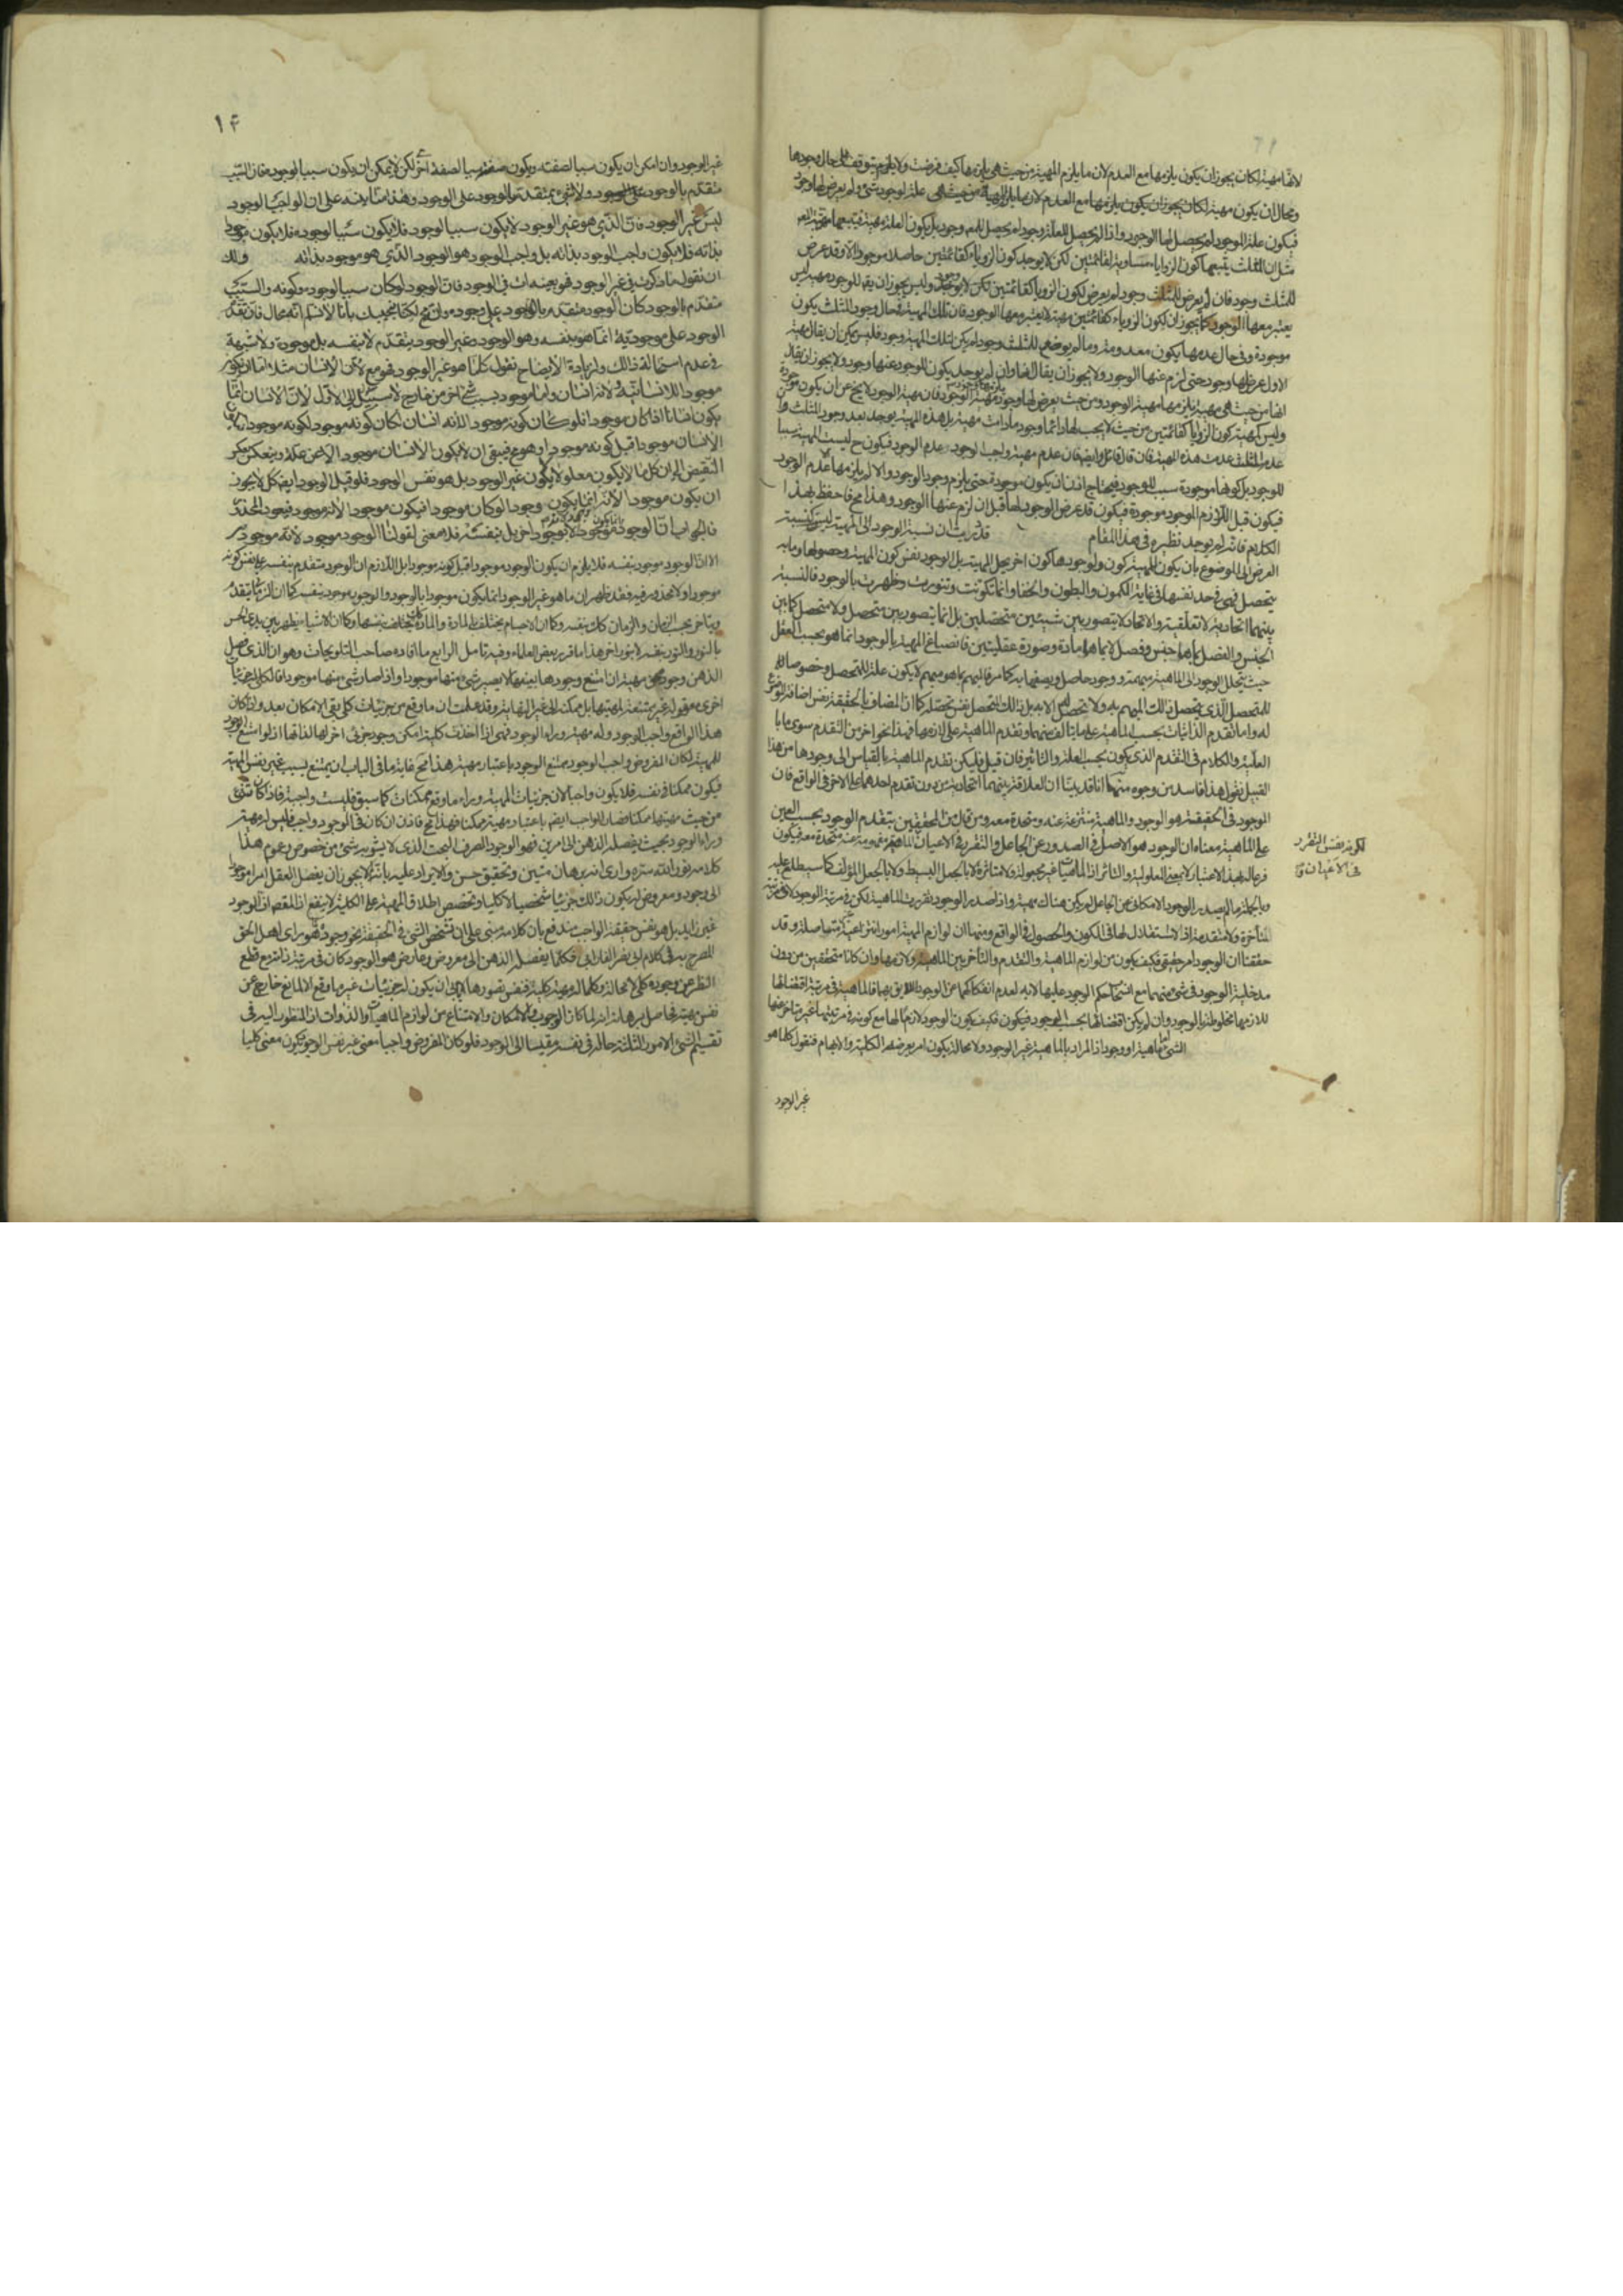 لانها مهية لكان يجوز ان يكون يلزمها مع العدم لان ما يلزم المهية من حيث هي يلزمها كيف فرضت ولا يلزم يتوقف على حال وجودها
ومحال ان يكون مهية لكان يجوز ان يكون يلزمها مع العدم لان ما يلزم المهية من حيث هي علة لوجود شئ ولم يعرض لها وجود
فيكون علة الموجود لم يحصل لها الوجود واذا لم يحصل للعلة وجود لم يحصل للمعلول وجود بل يكون العلة مهية فيتبعها مهية المعلول
مثل ان المثلث يتبعها كون الزوايا مساوية لقائمتين لكن لا يوجد كون الزوايا كقائمتين حاصلا موجودا الا وقد عرض
للمثلث وجود فان لم يعرض للمثلث وجود لم يعرض لكون الزوايا كقائمتين لكن وليس يجوز ان يقال للوجود مهية ليس
يعتبر معها الوجود كما يجوز ان لكون الزوايا كقائمتين مهية لا يعتبر معها الوجود فان تلك المهية في حال وجود المثلث يكون
موجودة وفي حال عدمها يكون معدومة وما لم يوضع للمثلث وجود لم يكن لتلك المهية وجود فليس يمكن ان يقال مهية
الاول عرض لها وجود حتى لزم عنها الوجود ولا يجوز ان يقال انها وان لم يوجد يكون للوجود عنها وجود ولا يجوز ان يقال
انها من حيث هي مهية يلزمها مهية الوجود ومن حيث يعرض لها وجود يلزمها وجود مهية الوجود فان مهية الوجود لا يخ عن ان يكون موجودة
وليس كمهية كون الزوايا كقائمتين من حيث لا يجب لها دائما وجود ما دامت مهية بل هذه المهية يوجد بعد وجود المثلث وان
عدم المثلث عدمت هذه المهية فان قال قائل وايضا فان عدم مهية واجب الوجود عدم الوجود فيكون ح ليست المهية سببا
للوجود بل كونها موجودة سبب للوجود فيحتاج اذن ان يكون موجودة حتى يلزم وجود الوجود والا لم يلزمها الا عدم الوجود
فيكون قبل اللازم الموجود موجودة فيكون قد عرض الوجود لها قبل ان لزم عنها الوجود وهذا مح فاحفظ بهذا
الكلام فانه لم يوجد نظيره في هذا المقام قد دريت ان نسبة الوجود الى المهية ليس كنسبة
العرض الى الموضوع بان يكون للمهية كون ولوجودها كون اخر يحل المهية بل الوجود نفس كون المهية وحصولها وما به
يتحصل فهي في حد نفسها في غاية الكمون والبطون والخفا وانما تكونت وتنورت وظهرت بالوجود فالنسبة
بينهما اتحادية لا تعلقية والاتحاد لا يتصور بين شيئين متحصلين بل انما يتصور بين متحصل ولا متحصل كما بين
الجنس والفصل بما هما جنس وفصل لا بما هما مادة وصورة عقليتين فانصباغ المهية بالوجود انما هو بحسب العقل
حيث يتحلل الموجود الى الماهية مبهمة ووجود حاصل ويصفها به كما مر فالمبهم بما هو مبهم لا يكون علة للتحصل وخصوصا
للمتحصل الذي يتحصل ذلك المبهم به ولا تحصل له الا به بل ذلك المتحصل نفس تحصله كما ان المضاف بالحقيقة نفس اضافة الموضوع
له واما تقدم الذاتيات بحسب الماهية على ما يتالف منها وتقدم الماهية على لازمها فهذا نحو اخر من التقدم سوى ما بالعلية
العلية والكلام في التقدم الذي يكون بحسب العلة والتاثير فان قيل فليكن تقدم الماهية بالقياس الى وجودها من هذا
القبيل نقول هذا فاسد من وجوه منها انا قد بينا ان العلاقة بينهما اتحادية من دون تقدم احدهما على الاخر في الواقع فان
الموجود في الحقيقة هو الوجود والماهية منتزعة عنه ومتحدة معه ومن قال من المحققين بتقدم الوجود بحسب العين
على الماهية معناه ان الوجود هو الاصل في الصدور عن الجاعل والتقرر في الاعيان الماهية مفهومة عنه متحدة معه فيكون
لكونه نفس التقرر
في الاعيان
فرعا له بهذا الاعتبار لا بمعنى المعلولية والتاثر اذ الماهيات غير مجعولة ولا متاثرة لا بالجعل البسيط ولا بالجعل المؤلف كما ستطلع عليه
وبالجملة ما لم يصدر الوجود الامكاني عن الجاعل لم يكن هناك مهية واذا صدر الوجود تقررت الماهية لكن في مرتبة الوجود لا في مرتبة
متأخرة ولا متقدمة اذ لا استقلال لها في الكون والحصول في الواقع ومنها ان لوازم المهية امور انتزاعية غير متاصلة وقد
حققنا ان الوجود امر حقيقي فكيف يكون من لوازم الماهية والتقدم والتأخر بين الماهية ولازمها وان كانا متحققين من دون
مدخلية الوجود في شئ منهما مع انسحاب حكم الوجود عليها لا به لعدم انفكاكهما عن الوجود فالماهية في مرتبة اقتضائها
للازمها مخلوطة بالوجود وان لم يكن اقتضائها بحسب الوجود فكيف يكون الوجود لازما لها مع كونه في مرتبتها غير متاخر عنها
الشئ اما ماهية او وجود اذ المراد بالماهية غير الوجود ولا محالة يكون امرا يعرضه الكلية والابهام فنقول كلما هو
غير الوجود
١٤
غير الوجود وان امكن ان يكون سببا لصفة ويكون صفته سببا لصفة اخرى لكن لا يمكن ان يكون سببا لوجوده فان السبب
متقدم بالوجود ولا شئ يتقدم بالوجود على الوجود وهذا مما ينبه على ان الواجب الوجود
ليس غير الوجود فان الذي هو غير الوجود لا يكون سببا لوجوده فلا يكون موجودا
بذاته فلا يكون واجب الوجود بذاته بل واجب الوجود هو الوجود الذي هو موجود بذاته ولك
ان تقول ما ذكرت في غير الوجود فهو بعينه ات في الوجود فان الوجود لو كان سببا لوجوده وكونه والسبب
متقدم بالوجود كان الوجود متقدم بالوجود على وجوده وانه مح لكنا نجيبك بانا لا نسلم انه محال فان تقدم
الوجود على موجوديته انما هو بنفسه وهو الوجود وغير الوجود يتقدم لا بنفسه بل بوجوده ولا شبهة
في عدم استحالة ذلك ولزيادة الايضاح نقول كلما هو غير الوجود فهو مع لان الانسان مثلا اما ان يكون
موجودا للانسانية ولانه انسان واما موجود بسبب شئ اخر من خارج لا سبيل الى الاول لان الانسان انما
يكون انسانا اذا كان موجودا فلو كان كونه موجودا لانه انسان لكان كونه موجودا لكونه موجودا فيكون
الانسان موجودا قبل كونه موجودا وهو مح فبقي ان لا يكون الانسان موجودا الا عن علة وينعكس بعكس
النقيض الى ان كل ما لا يكون معلولا لا يكون غير الوجود بل هو نفس الوجود فلو قيل الوجود ايضا كل لا يجوز
ان يكون موجودا لانه انما يكون وجودا لو كان موجودا فيكون موجودا لانه موجود فيعود المحذور
فالجواب ان الوجود موجود لا بوجود اخر بل بنفسه فلا معنى لقولنا الوجود موجود لانه موجود
الا ان الوجود موجود بنفسه فلا يلزم ان يكون الوجود موجودا قبل كونه موجودا بل اللازم ان الوجود متقدم بنفسه على نفس كونه
موجودا ولا محذور فيه فقد ظهر ان ما هو غير الوجود انما يكون موجودا بالوجود والوجود موجود بنفسه كما ان الزماني يتقدم
ويتاخر بحسب الزمان والزمان كذلك بنفسه وكما ان الاجسام يختلف بالمادة والمادة تختلف بنفسها وكما ان الاشياء يظهر بين يدي الحس
بالنور والنور بنفسه لا بنور اخر هذا ما قرره بعض العلماء وفيه تامل الرابع ما افاده صاحب التلويحات وهو ان الذي فصل
الذهن وجوده عن مهيته ان امتنع وجودها بعينها لا يصير شئ منها موجودا واذا صار شئ منها موجودا فالكلي له جزئيات
اخرى معقولة غير ممتنعة لمهيتها بل ممكنة الى غير النهاية وقد علمت ان ما وقع من جزئيات كلي بقي الامكان بعد واذا كان
هذا الواقع واجب الوجود وله مهية وراء الوجود فهي اذا اخذت كلية امكن وجود جزئي اخر لها لذاتها اذ لو امتنع الوجود
للمهية لكان المفروض واجب الوجود ممتنع الوجود باعتبار مهيته هذا مح غاية ما في الباب ان يمتنع بسبب غير نفس المهية
فيكون ممكنا في نفسه فلا يكون واجبا لان جزئيات المهية وراء ما وقع ممكنات كما سبق فليست واجبة فاذا كان شئ
من حيث مهيتها ممكنا فصار الواجب ايضا باعتبار مهيته ممكنا وهذا مح فاذن ان كان في الوجود واجب فليس له مهية
وراء الوجود بحيث يفصله الذهن الى امرين فهو الوجود الصرف البحت الذي لا يشوبه شئ من خصوص وعموم هذا
كلامه نور الله سره وارى انه برهان متين وتحقيق حسن والايراد عليه بانه لم لا يجوز ان يفصل العقل امرا موجودا
الى وجود ومعروض له يكون ذلك جزئيا شخصيا لا كليا وتخصيص اطلاق المهية على الكلية لا ينفع اذ المقصد ان الوجود
غير زايد بل هو نفس حقيقة الواجب مندفع بان كلامه مبني على ان تشخص الشئ في الحقيقة نحو وجوده كما هو راى اهل الحق
المصرح به في كلام ابي نصر الفارابي فكلما يفصله الذهن الى معروض وعارض هو الوجود كان في مرتبة ذاته مع قطع
النظر عن وجوده كليا لا محالة وكلما له مهية كلية فنفس تصورها لا يابى ان يكون له جزئيات غير ما وقع الا لمانع خارج عن
نفس مهيته فحاصل برهانه انه لما كان الوجوب والامكان والامتناع من لوازم الماهيات والذوات اذ المنظور اليه في
تقسيم الشئ الى الامور الثلاثة حاله في نفسه مقيسا الى الوجود فلو كان المفروض واجبا معنى غير نفس الوجود يكون معنى كليا